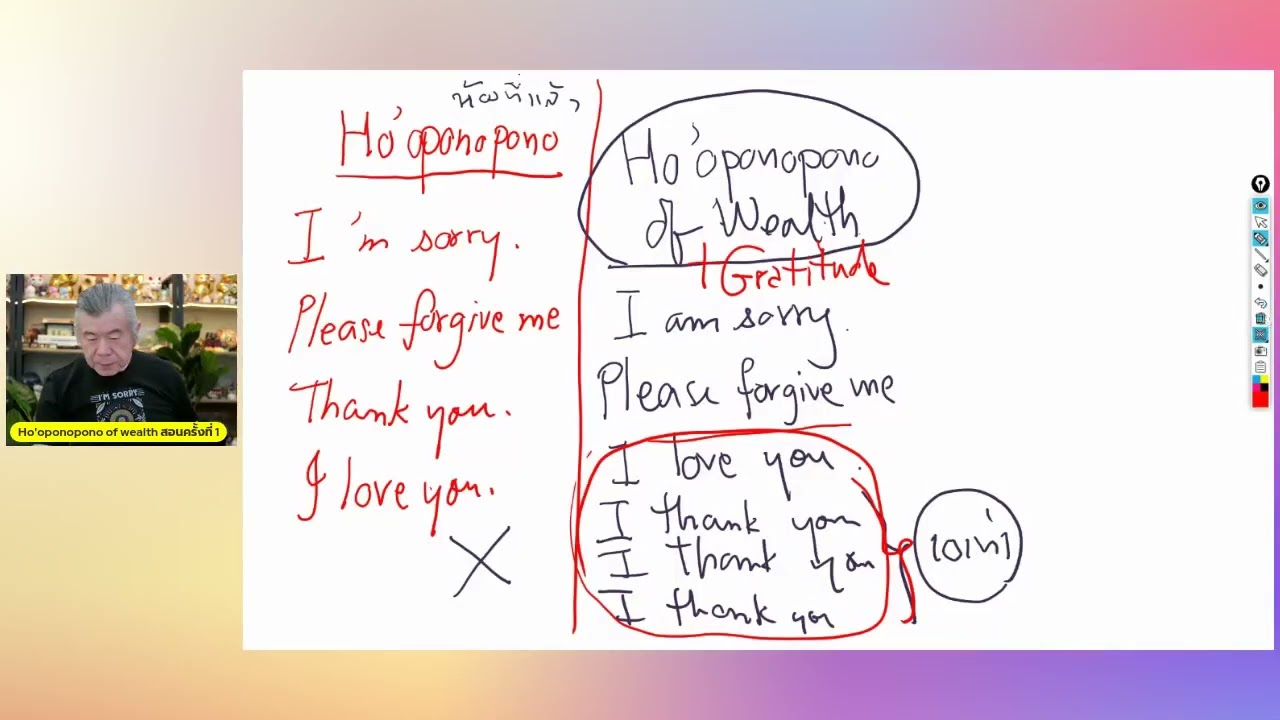 Ho'oponopono
I'm sorry.
Please forgive me
Thank you.
I love you.
Ho'oponopono
of Wealth
+ Gratitude
I am sorry.
Please forgive me
I love you.
I thank you
I thank you
I thank you
I'M SORRY
Ho'oponopono of wealth สอนครั้งที่ 1